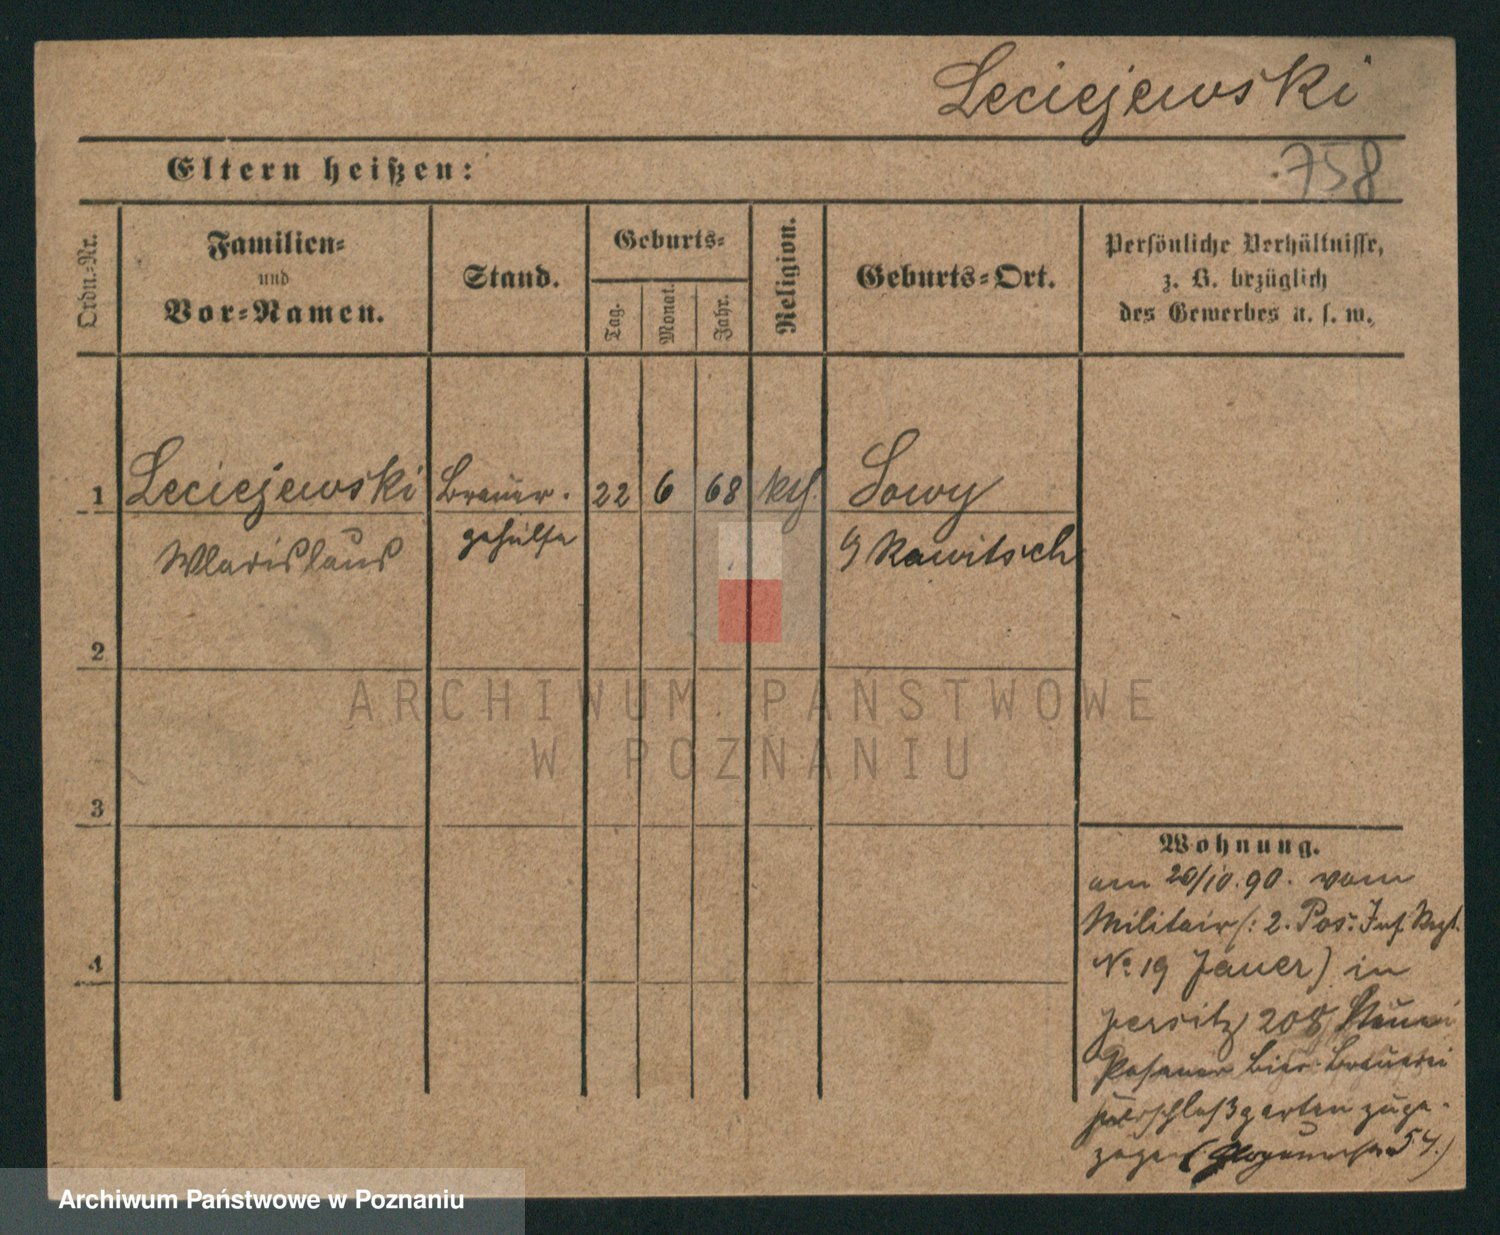 Leciejewski
758
Eltern heißen:
Ordn.-Nr.
Familien-
und
Vor-Namen.
Stand.
Geburts-
Tag.
Monat.
Jahr.
Religion.
Geburts-Ort.
Persönliche Verhältnisse,
z. B. bezüglich
des Gewerbes u. s. w.
1 Leciejewski Brauer- 22 6 68 kth. Sowy
Wladislaus gehülfe Kawitsch
2
3
4
Wohnung.
am 20/10.90. vom
Militair /: 2. Pos. Inf Regt.
No 19 Jauer) in
Jersitz 208
Posener Bier-Brauerei
garten zuge-
zogen ( 54.)
ARCHIWUM PAŃSTWOWE
W POZNANIU
Archiwum Państwowe w Poznaniu